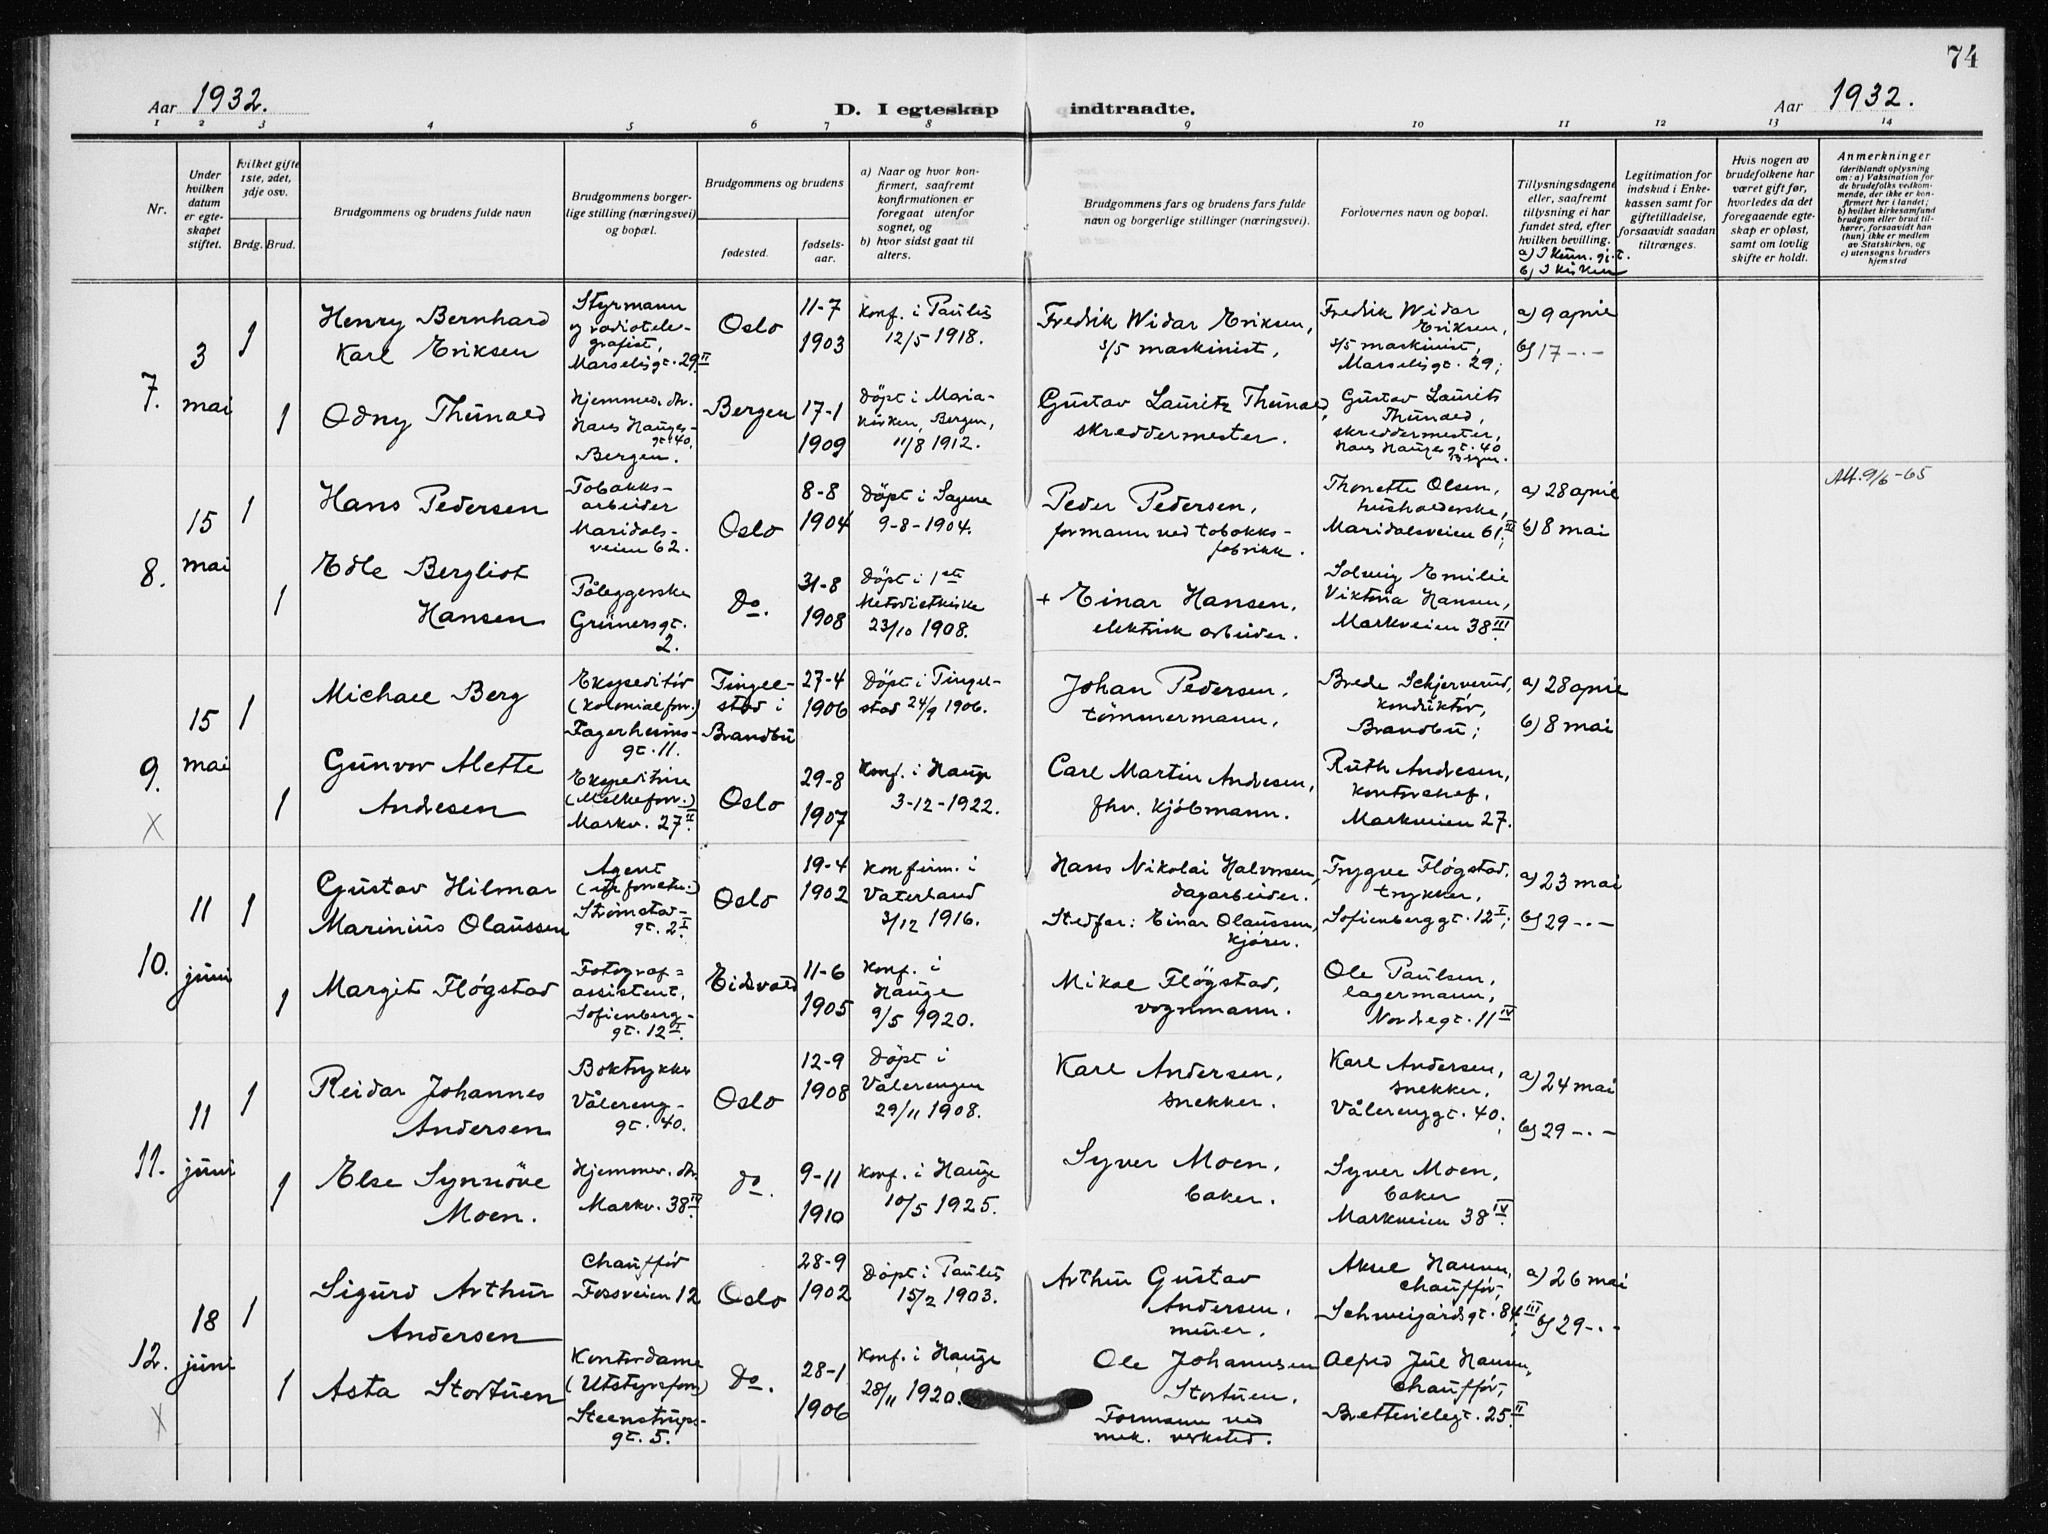 74
Aar 1932.
D. I egteskap indtraadte.
Aar 1932.
1 2 3 4 5 6 7 8 9 10 11 12 13 14
Nr.
Under
hvilken
datum
er egte-
skapet
stiftet.
hvilket gifte
1ste, 2det,
3dje osv.
Brdg. Brud.
Brudgommens og brudens fulde navn
Brudgommens borger-
lige stilling (næringsvei)
og bopæl.
Brudgommens og brudens
fødested.
fødsels-
aar.
a) Naar og hvor kon-
firmert, saafremt
konfirmationen er
foregaat utenfor
sognet, og
b) hvor sidst gaat til
alters.
Brudgommens fars og brudens fars fulde
navn og borgerlige stillinger (næringsvei).
Forlovernes navn og bopæl.
Tillysningsdagene
eller, saafremt
tillysning ei har
fundet sted, efter
hvilken bevilling.
a) I kun. g.t.
b) I kirken
Legitimation for
indskud i Enke-
kassen samt for
giftetilladelse,
forsaavidt saadan
tiltrænges.
Hvis nogen av
brudefolkene har
været gift før,
hvorledes da det
foregaaende egte-
skap er opløst,
samt om lovlig
skifte er holdt.
Anmerkninger
(deriblandt oplysning
om: a) Vaksination for
de brudefolks vedkom-
mende, der ikke er kon-
firmert her i landet;
b) hvilket kirkesamfund
brudgom eller brud til-
hører, forsaavidt han
(hun) ikke er medlem
av Statskirken, og
c) utensogns bruders
hjemsted
7.
3
mai
1
Henry Bernhard
Karl Eriksen
Styrmann
og radiotele-
grafist,
Marselisgt. 29 II
Oslo
11-7
1903
Konf. i Paulus
12/5 1918.
Fredrik Widar Eriksen,
s/s maskinist,
Fredrik Widar
Eriksen,
s/s maskinist,
Marselisgt. 29;
a) 9 april
b) 17 -.-
1
Odny Thunald
Hjemmev. dtr.
Hans Hauges-
gt. 40,
Bergen.
Bergen
17-1
1909
Døpt i Maria-
kirken, Bergen,
11/8 1912.
Gustav Lauritz Thunald,
skreddermester.
Gustav Laurits
Thunald,
skreddermester,
Hans Hauges gt. 40
Bergen.
8.
15
mai
1
Hans Pedersen
Tobakks-
arbeider
Maridals-
veien 62.
Oslo
8-8
1904
Døpt i Sagene
9-8-1904.
Peder Pedersen,
formann ved tobakks-
fabrikk.
Thonette Olsen,
husholderske,
Maridalsveien 61 III;
a) 28 april
b) 8 mai
Att. 9/6-65
1
Edle Bergliot
Hansen
Påleggerske
Grünersgt.
2.
Do.
31-8
1908
Døpt i 1ste
Metodistkirke
23/10 1908.
+ Einar Hansen,
elektrisk arbeider.
Solveig Emilie
Viktoria Hansen,
Markveien 38 III.
9.
X
15
mai
1
Michael Berg
Ekspeditør
(kolonialforr.)
Fagerheims-
gt. 11.
Tingel-
stad i
Brandbu
27-4
1906
Døpt i Tingel-
stad 24/9 1906.
Johan Pedersen,
tømmermann,
Brede Schjerverud,
konduktør,
Brandbu;
a) 28 april
b) 8 mai
1
Gunvor Mette
Andresen
Ekspeditrise
(Melkeforr.)
Markv. 27 II.
Oslo
29-8
1907
Konf. i Hauge
3-12-1922.
Carl Martin Andresen,
fhv. kjøbmann.
Ruth Andresen,
kontorchef,
Markveien 27.
10.
11
juni
1
Gustav Hilmar
Marinius Olaussen
Agent
Strømstad-
gt. 2 I.
Oslo
19-4
1902
Konfirm. i
Vaterland
3/12 1916.
Hans Nikolai Halvorsen,
dagarbeider.
Stedfar: Einar Olaussen,
kjører.
Trygve Fløgstad,
trykker,
Sofienberggt. 12 I;
a) 23 mai
b) 29 -.-
1
Margit Fløgstad
Fotograf=
assistent,
Sofienberg-
gt. 12 I.
Eidsvold
11-6
1905
Konf. i
Hauge
9/5 1920.
Mikal Fløgstad,
vognmann.
Ole Paulsen,
lagermann,
Nordregt. 11 IV
11.
11
juni
1
Reidar Johannes
Andersen
Boktrykker
Vålereng-
gt. 40.
Oslo
12-9
1908
Døpt i
Vålerengen
29/11 1908.
Karl Andersen,
snekker.
Karl Andersen,
snekker.
Vålerenggt. 40;
a) 24 mai
b) 29 -.-
1
Else Synnöve
Moen.
Hjemmev. dtr.
Markv. 38 IV.
do.
9-11
1910
Konf. i Hauge
10/5 1925.
Syver Moen,
baker.
Syver Moen,
baker
Markveien 38 IV.
12.
X
18
juni
1
Sigurd Arthur
Andersen
Chauffør
Fossveien 12
Oslo
28-9
1902
Døpt i Paulus
15/2 1903.
Arthur Gustav
Andersen,
murer.
Aksel Hansen,
chauffør,
Schweigårdsgt. 84 III;
a) 26 mai
b) 29 -.-
1
Asta Stortuen
Kontordame
(Utstyrsforr)
Steenstrups-
gt. 5.
Do.
28-1
1906
Konf. i Hauge
28/11 1920.
Ole Johannesen
Stortuen,
Formann ved
mek. verksted.
Alfred Jul Hansen,
chauffør,
Brettevillegt. 25 II